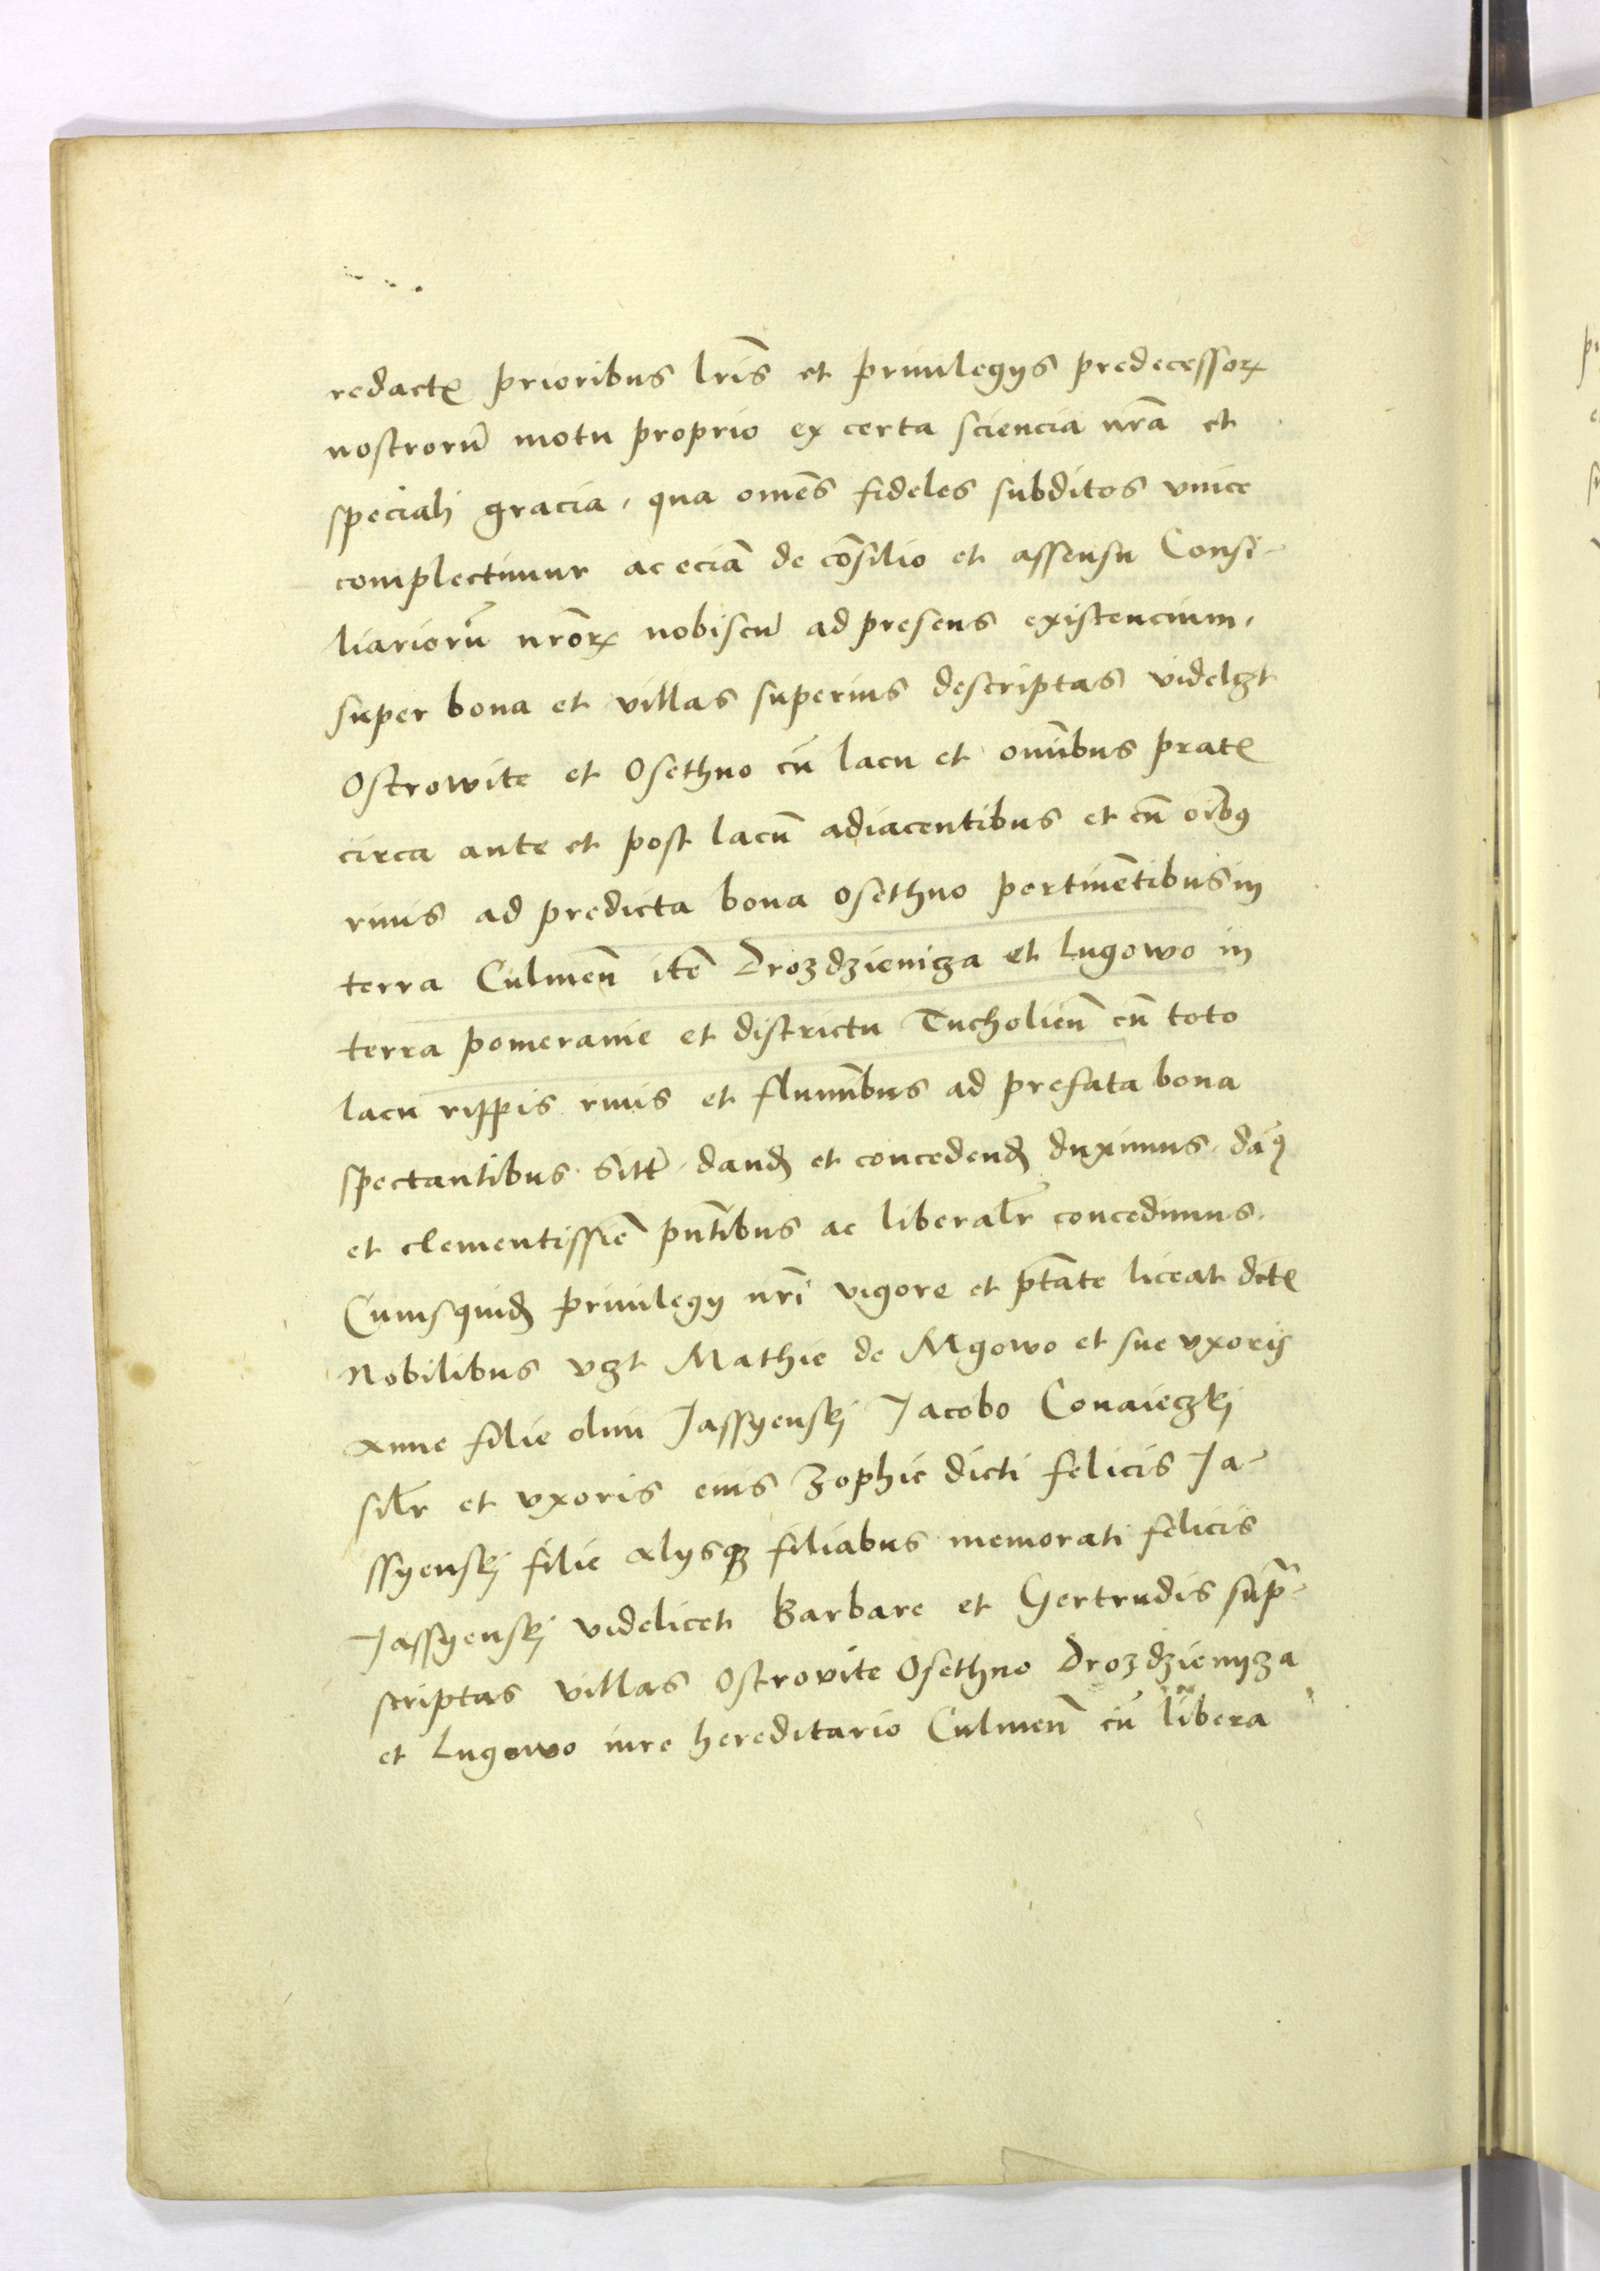 redactꝭ prioribus lrīs et priuilegys predecessorꝝ
nostrorū motu proprio ex certa sciencia nrā et
speciali gracia, qua omēs fideles subditos vnice
complectimur ac eciā de cōsilio et assensu Consi-
liariorū nrōrꝝ nobiscū ad presens existencium,
super bona et villas superius descriptas videlꝫt
Ostrowite et Osethno cū lacu et omībus pratꝭ
circa ante et post lacū adiacentibus et cū oībꝰ
riuis ad predicta bona Osethno pertinētibus in
terra Culmeñ itē Drozdzienicza et Lugowo in
terra pomeranie et districtu Tucholieñ cū toto
lacu rippis riuis et flumībus ad prefata bona
spectantibus. dand et concedend duximus. 
et clementissīe pñtibus ac liberalr̄ concedimus.
Cuiusquid priuilegy nrī vigore et ptāte liceat dctꝭ
Nobilibus vꝫt Mathie de Mgowo et sue vxoris
Anne filie olim Jassyenskj Jacobo Conaieczkj
silr̄ et vxoris eius Zophie dicti felicis Ja-
ssyenskj filie alysqꝫ filiabus memorati felicis
Jassyenskj videlicet Barbare et Gertrudis supra-
scriptas villas Ostrovite Osethno Drozdzienyza
et Lugowo iure hereditario Culmeñ cū libera